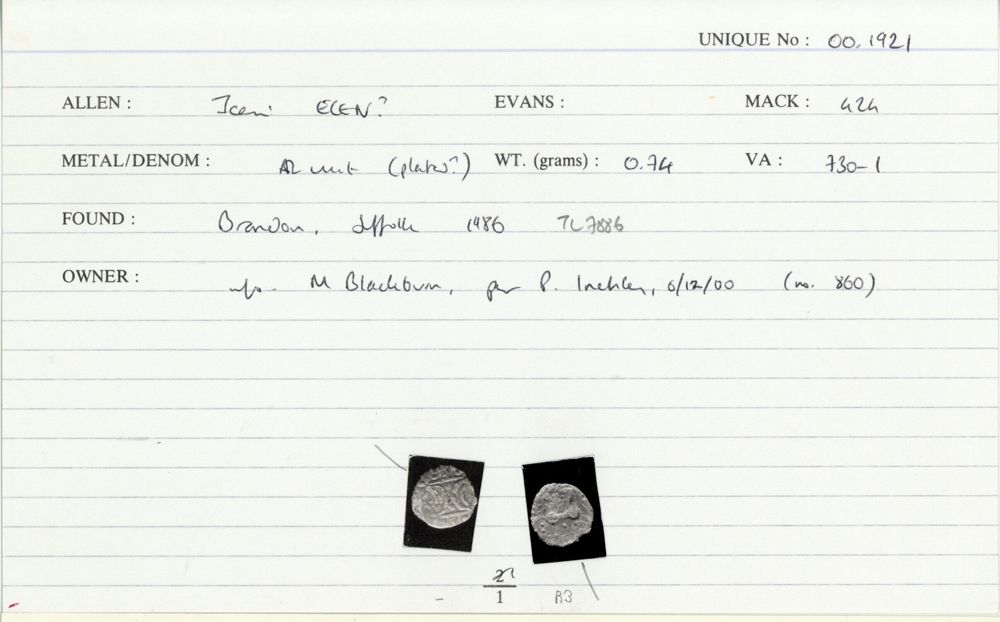 UNIQUE No : 00.1921
ALLEN : Iceni ECEN? EVANS : MACK : 424
METAL/DENOM : AR unit (plated?) WT. (grams) : 0.74 VA : 730-1
FOUND : Brandon, Suffolk 1986 TL7886
OWNER : info. M Blackburn, per P. 6/12/00 (no. 860)
1
- B3